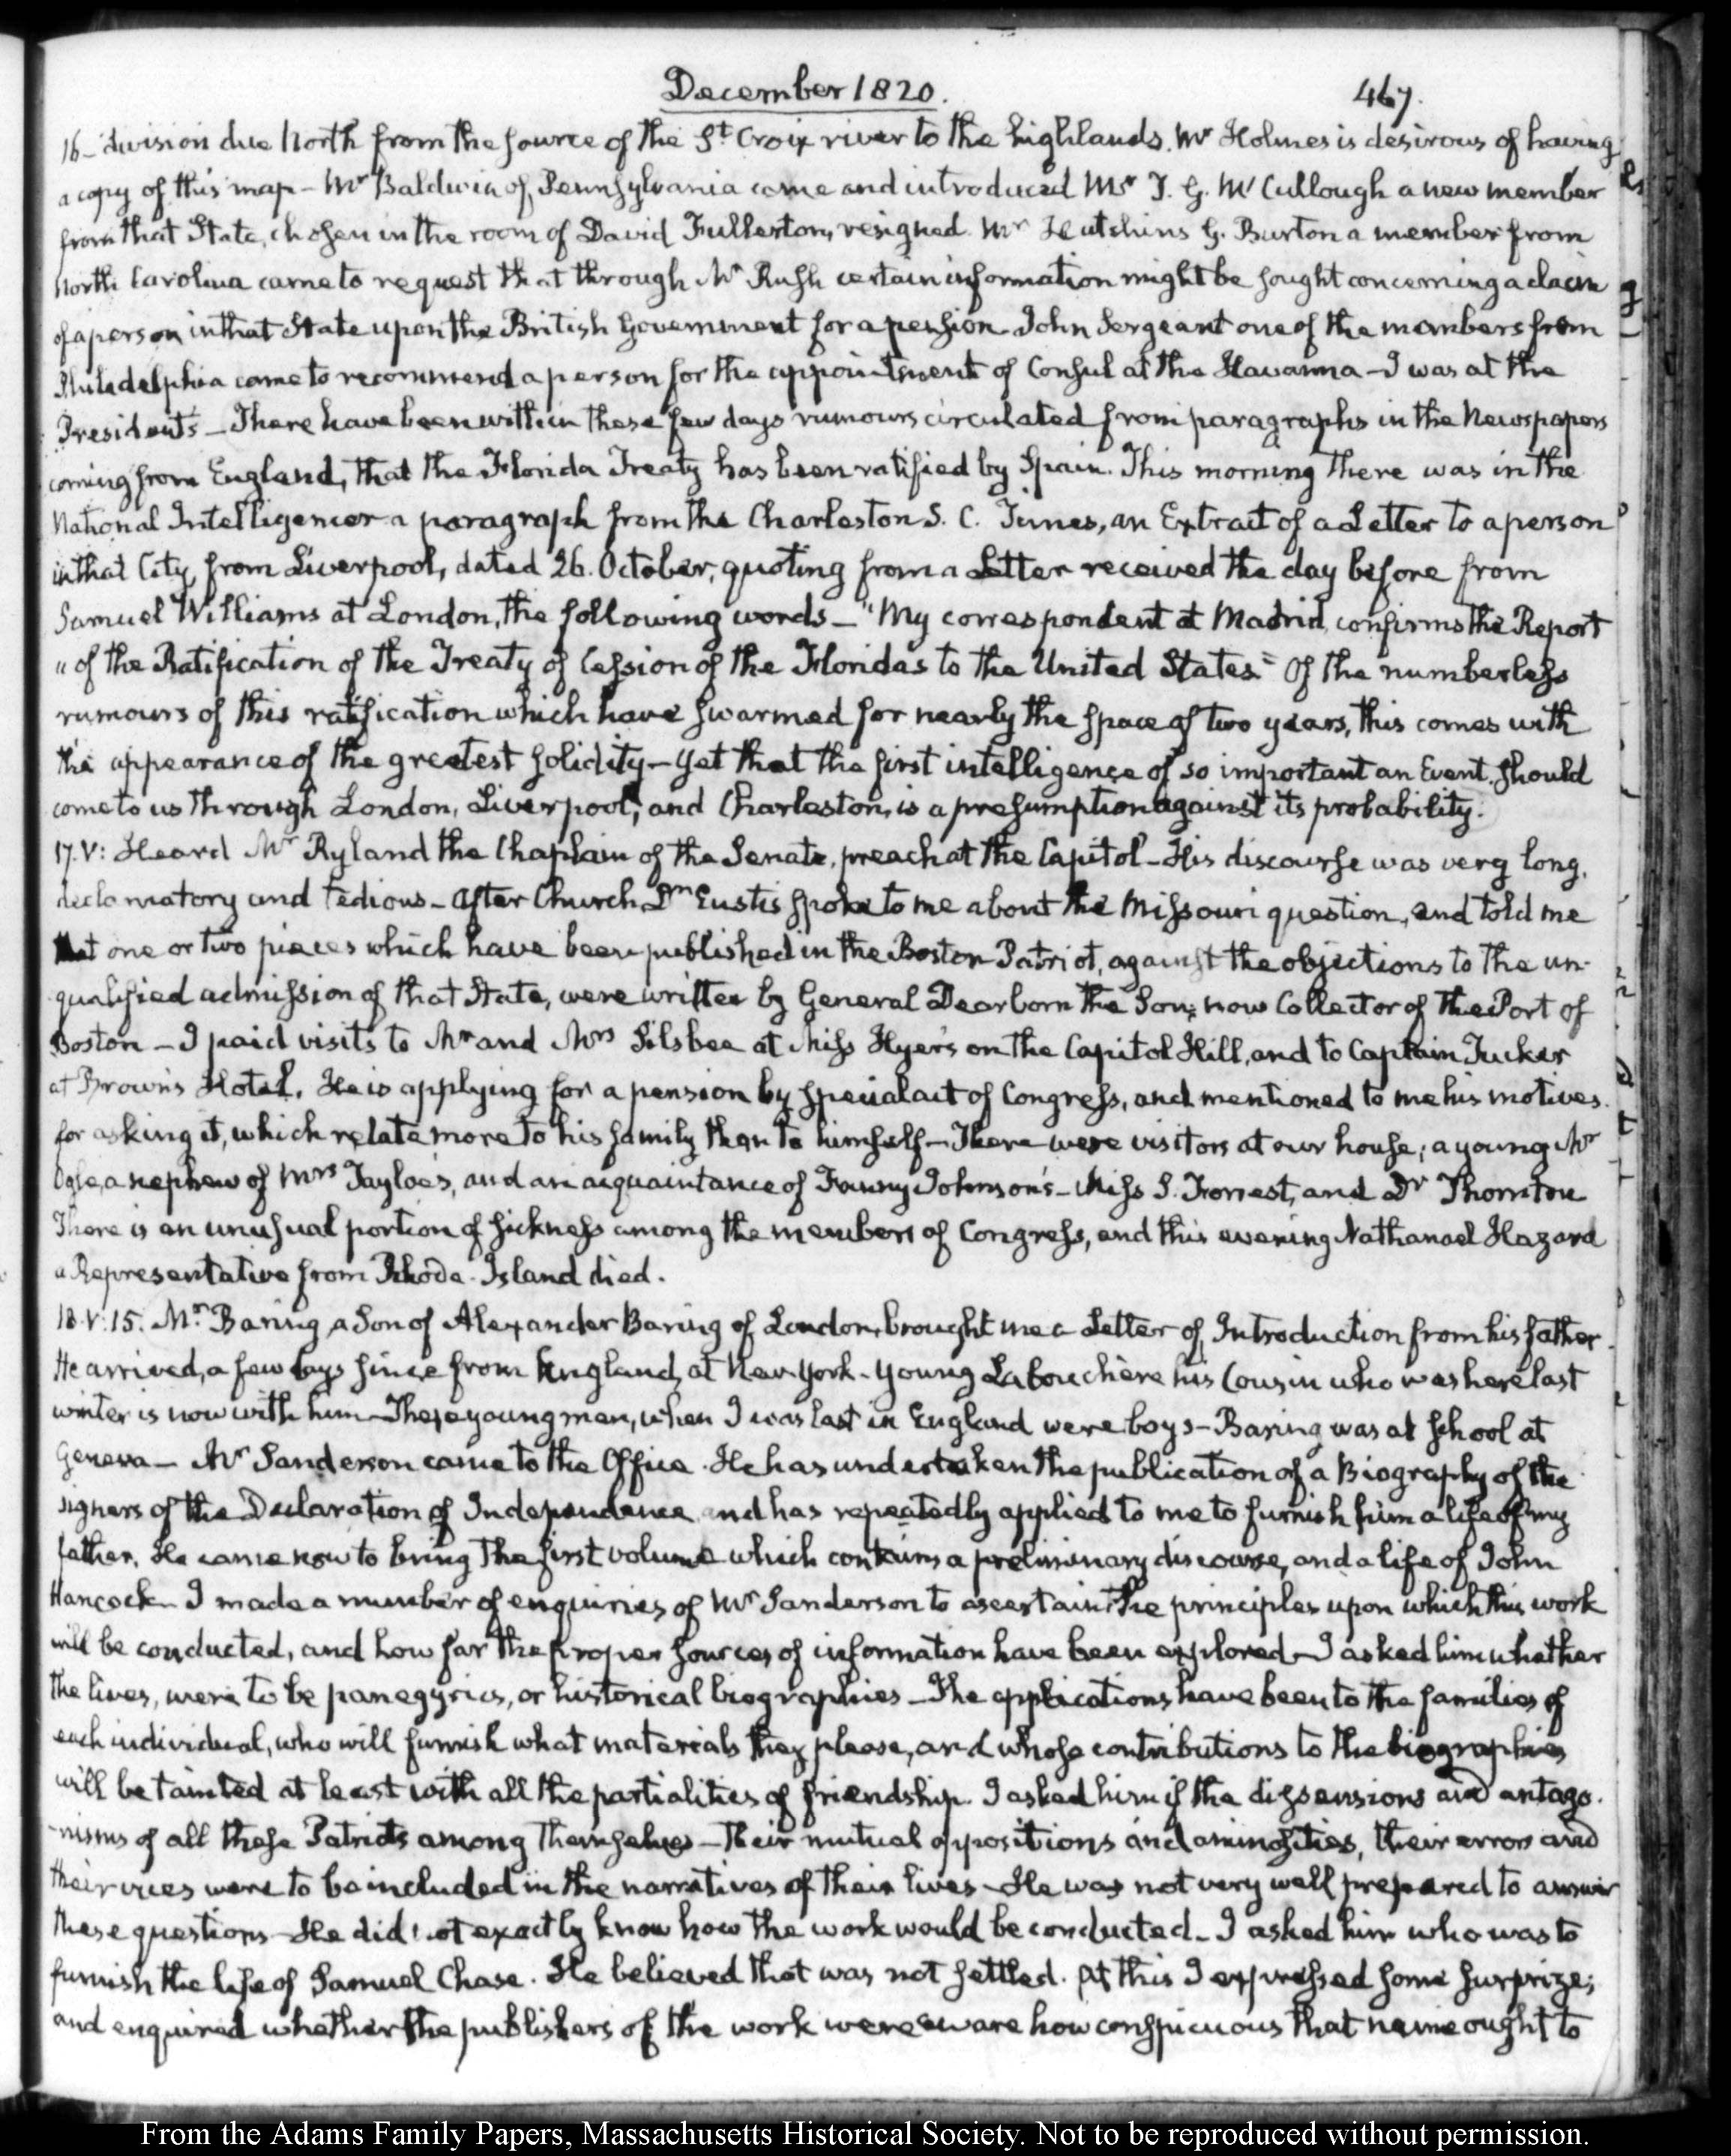 December 1820.
467.
16- division due North from the source of the St. Croix river to the highlands. Mr Holmes is desirous of having
a copy of this map – Mr Baldwin of Pennsylvania came and introduced Mr T. G. McCullough a new member
from that State, chosen in the room of David Fullerton, resigned. Mr Hutchins G. Burton a member from
North Carolina came to request that through Mr Rush certain information might be sought concerning a claim
of a person in that State upon the British Government for a pension. John Sergeant one of the members from
Philadelphia came to recommend a person for the appointment of Consul at the Havanna – I was at the
President's – There have been within these few days rumours circulated from paragraphs in the Newspapers
coming from England, that the Florida Treaty has been ratified by Spain. This morning there was in the
National Intelligencer a paragraph from the Charleston S. C. Times, an Extract of a Letter to a person
in that City, from Liverpool, dated 26. October, quoting from a Letter received the day before from
Samuel Williams at London, the following words – "My correspondent at Madrid, confirms the Report
" of the Ratification of the Treaty of Cession of the Floridas to the United States" Of the numberless
rumours of this ratification which have swarmed for nearly the space of two years, this comes with
the appearance of the greatest solidity – Yet that the first intelligence of so important an Event should
come to us through London, Liverpool, and Charleston, is a presumption against its probability.
17. V: Heard Mr Ryland the Chaplain of the Senate, preach at the Capitol – His discourse was very long,
declamatory and tedious – After Church Dr Eustis spoke to me about the Missouri question, and told me
that one or two pieces which have been published in the Boston Patriot, against the objections to the un-
qualified admission of that State, were written by General Dearborn the Son; now Collector of the Port of
Boston – I paid visits to Mr and Mrs Silsbee at Miss Hyer's on the Capitol Hill, and to Captain Tucker
at Brown's Hotel. He is applying for a pension by special act of Congress, and mentioned to me his motives
for asking it, which relate more to his family than to himself – There were visitors at our house; a young Mr
Ogle, a nephew of Mrs Tayloe's, and an acquaintance of Fanny Johnson's – Miss S. Forrest, and Dr Thornton
There is an unusual portion of sickness among the members of Congress, and this evening Nathanael Hazard
a Representative from Rhode-Island died.
18. V:15. Mr Baring a Son of Alexander Baring of London, brought me a Letter of Introduction from his father.
He arrived, a few days since from England, at New-York. Young Labouchère his Cousin who was here last
winter is now with him – These young men, when I was last in England were boys – Baring was at School at
Geneva – Mr Sanderson came to the Office. He has undertaken the publication of a Biography of the
signers of the Declaration of Independence and has repeatedly applied to me to furnish him a life of my
father. He came now to bring the first volume which contains a preliminary discourse, and a life of John
Hancock – I made a number of enquiries of Mr Sanderson to ascertain the principles upon which this work
will be conducted, and how far the proper sources of information have been explored – I asked him whether
the lives, were to be panegyrics, or historical biographies – The applications have been to the families of
each individual, who will furnish what materials they please, and whose contributions to the biographies
will be tainted at least with all the partialities of friendship. I asked him if the dissensions and antago-
-nisms of all these Patriots among themselves – their mutual oppositions and animosities, their errors and
their vices were to be included in the narratives of their lives – He was not very well prepared to answer
these questions – He did not exactly know how the work would be conducted – I asked him who was to
furnish the life of Samuel Chase. He believed that was not settled. At this I expressed some surprize;
and enquired whether the publishers of the work were aware how conspicuous that name ought to
From the Adams Family Papers, Massachusetts Historical Society. Not to be reproduced without permission.